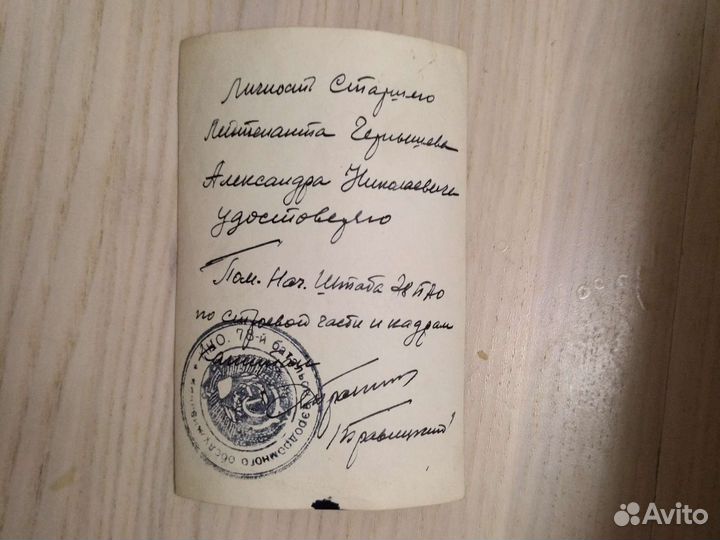 Личность Старшего
Лейтенанта Чернышева
Александра Николаевича
удостоверяю
Пом. Нач. Штаба
по строевой части и кадрам
НКО. 78-й батальон аэродромного обслуживания
Avito